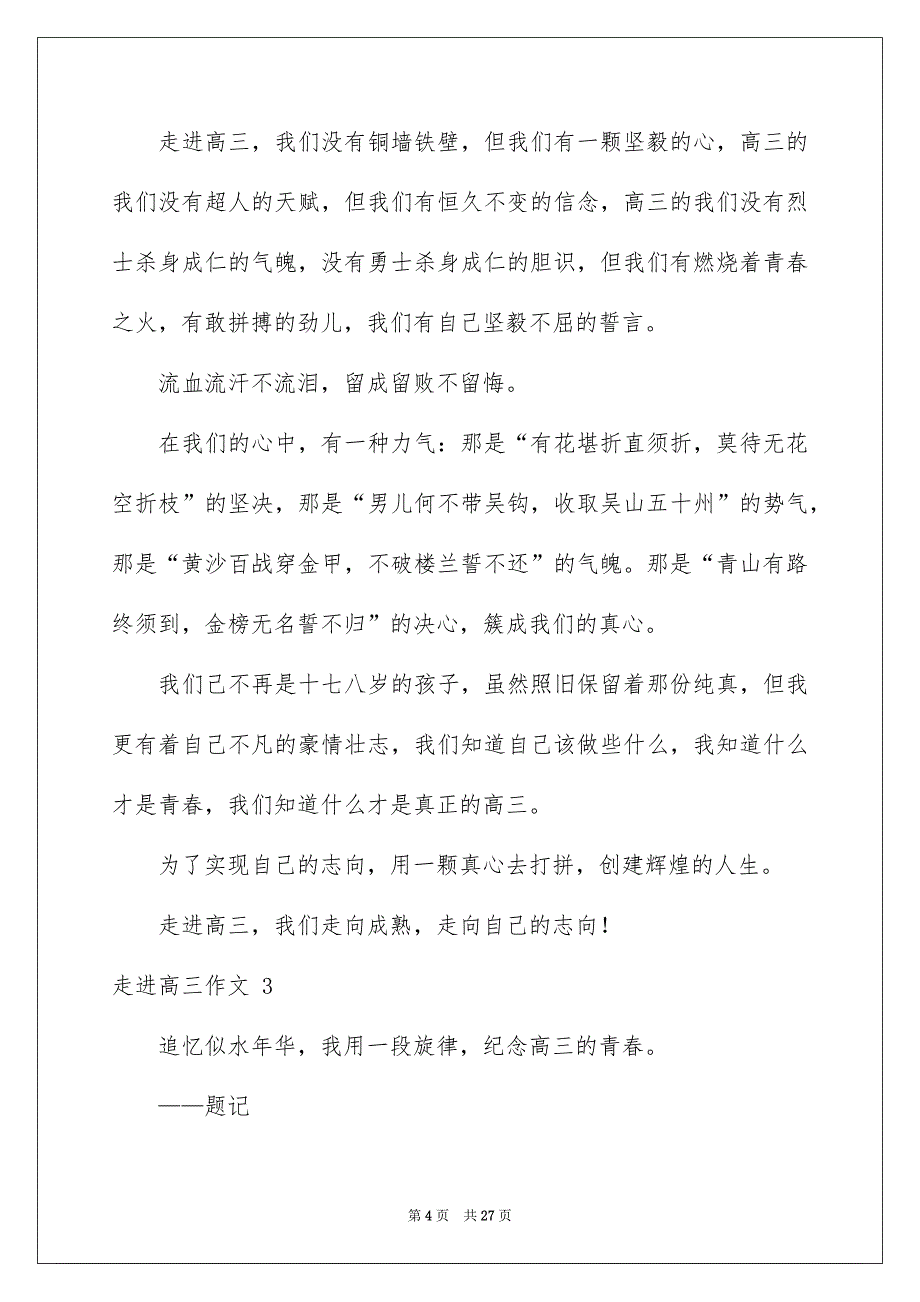 走进高三，我们没有铜墙铁壁，但我们有一颗坚毅的心，高三的
我们没有超人的天赋，但我们有恒久不变的信念，高三的我们没有烈
士杀身成仁的气魄，没有勇士杀身成仁的胆识，但我们有燃烧着青春
之火，有敢拼搏的劲儿，我们有自己坚毅不屈的誓言。
流血流汗不流泪，留成留败不留悔。
在我们的心中，有一种力气：那是“有花堪折直须折，莫待无花
空折枝”的坚决，那是“男儿何不带吴钩，收取吴山五十州”的势气，
那是“黄沙百战穿金甲，不破楼兰誓不还”的气魄。那是“青山有路
终须到，金榜无名誓不归”的决心，簇成我们的真心。
我们己不再是十七八岁的孩子，虽然照旧保留着那份纯真，但我
更有着自己不凡的豪情壮志，我们知道自己该做些什么，我知道什么
才是青春，我们知道什么才是真正的高三。
为了实现自己的志向，用一颗真心去打拼，创建辉煌的人生。
走进高三，我们走向成熟，走向自己的志向！
走进高三作文 3
追忆似水年华，我用一段旋律，纪念高三的青春。
——题记
第 4 页 共 27 页